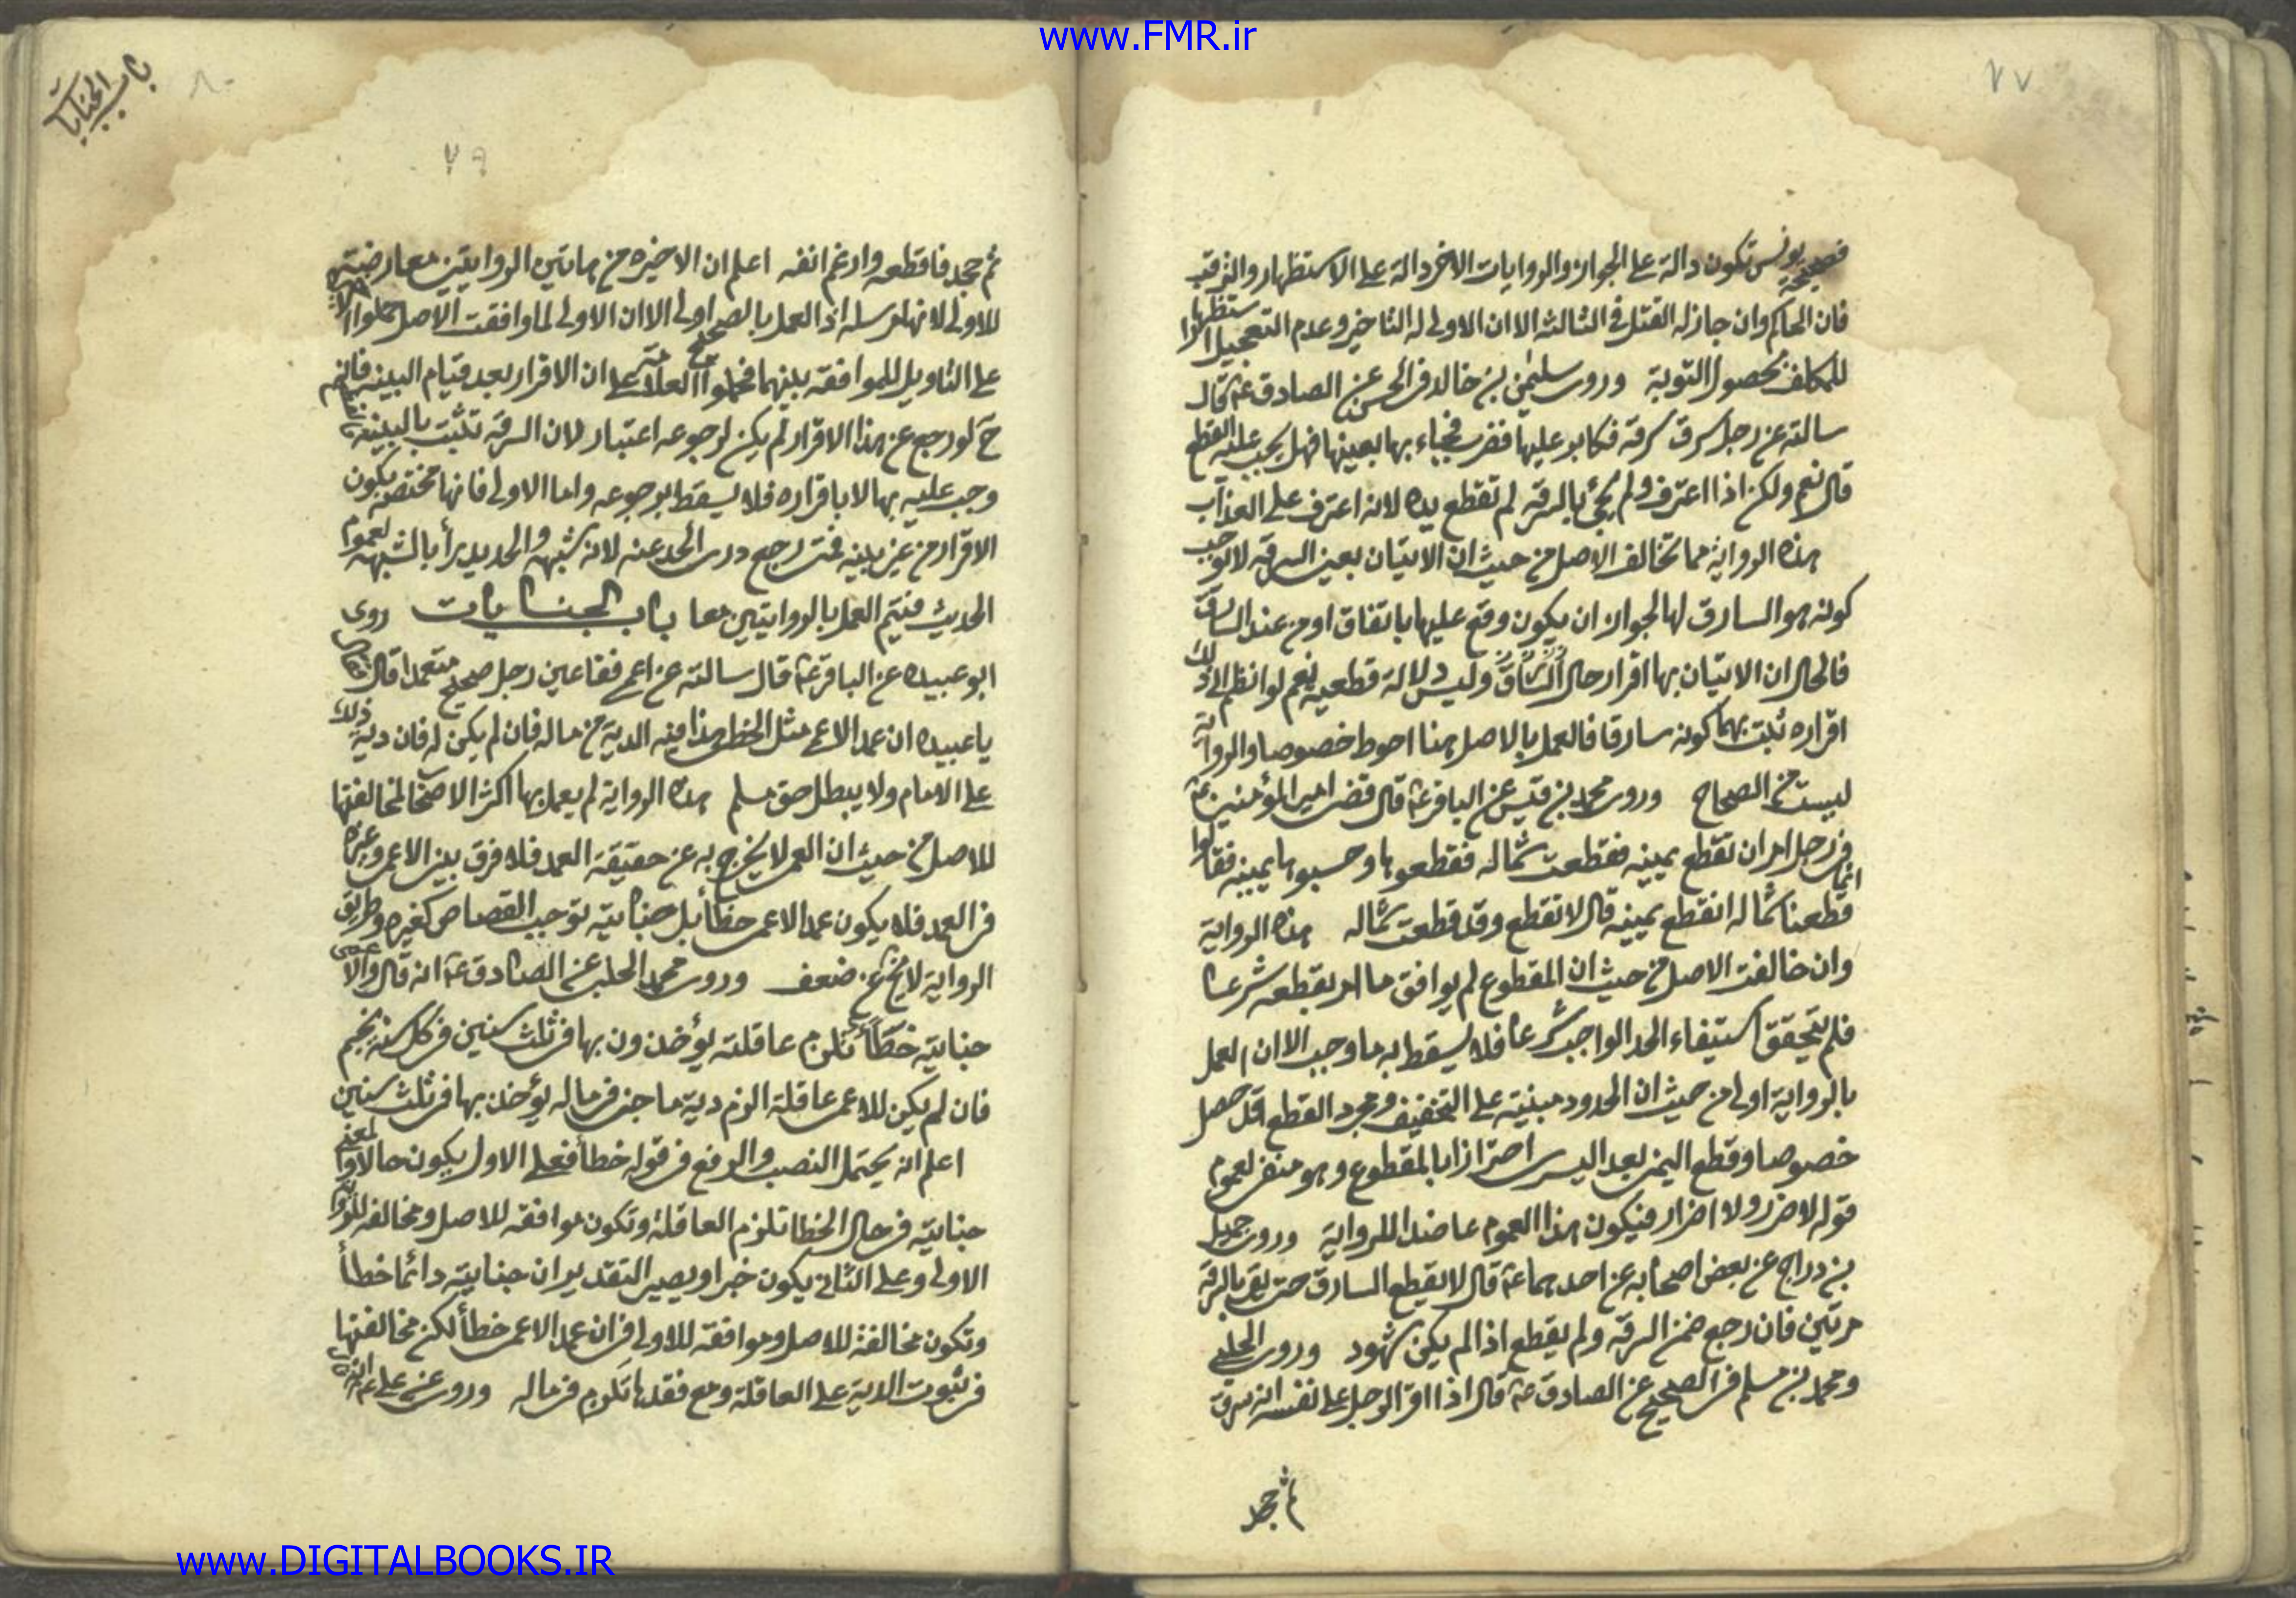 www.FMR.ir
٧٧
فصحيحة يونس تكون دالة على الجواز والروايات الاخر دالة على الاستظهار والترقب
فان الحاكم وان جاز له القتل فى الثالثه الا ان الاولى له التاخير وعدم التعجيل استظهارا
للمكلف بحصول التوبة وروى سليمن بن خالد فى الحسن عن الصادق ع قال
سالته عن رجل سرق سرقة فكابر عليها فضرب فجاء بها بعينها فهل يجب عليه القطع
قال نعم ولكن اذا اعترف ولم يجئ بالسرقة لم تقطع يده لانه اعترف على العذاب
هذه الرواية مما تخالف الاصل من حيث ان الاتيان بعين السرقة لا توجب
كونه هو السارق لها لجواز ان يكون وقع عليها باتفاق او من عند السارق
فالحال ان الاتيان بها اقرار حال السارق وليس دلالة قطعية نعم لو انظم الى ذلك
اقراره ثبت بهما كونه سارقا فالعمل بالاصل هنا احوط خصوصا والرواية
ليست من الصحاح وروى محمد بن قيس عن الباقر ع قال قضى امير المؤمنين ع
فى رجل امر ان تقطع يمينه فقطعت شماله فقطعوها وحسبوها يمينه فقالوا
انما قطعنا شماله انقطع يمينه قال لا تقطع وقد قطعت شماله هذه الرواية
وان خالفت الاصل من حيث ان المقطوع لم يوافق ما امر بقطعه شرعا
فلم يتحقق استيفاء الحد الواجب شرعا فلا يسقط به ما وجب الا ان العمل
بالرواية اولى من حيث ان الحدود مبنية على التخفيف ومجرد القطع قد حصل
خصوصا وقطع اليمنى بعد اليسرى اضرارا بالمقطوع وهو منفى لعموم
قوله لا ضرر ولا اضرار فيكون هذا العموم عاضدا للرواية وروى جميل
بن دراج عن بعض اصحابه عن احدهما ع قال لا يقطع السارق حتى يقر بالسرقة
مرتين فان رجع ضمن السرقة ولم يقطع اذا لم يكن شهود وروى الحلبى
ومحمد بن مسلم فى الصحيح عن الصادق ع قال اذا اقر الرجل على نفسه انه سرق
ثم جحد
باب الجنايات
٨٠
٧٩
ثم جحد فاقطعه وارغم انفه اعلم ان الاخيره من هاتين الروايتين معارضتها
للاولى لانها مرسله اذ العمل بالصحيح اولى الا ان الاولى لما وافقت الاصل حملوا
على التاويل للموافقة بينهما فحملوا العلامة على ان الاقرار بعد قيام البينه فانه
ح لو رجع عن هذا الاقرار لم يكن لرجوعه اعتبار لان السرقة تثبت بالبينة
وجب عليه بها لا باقراره فلا يسقط برجوعه واما الاولى فانها مختصة بكون
الاقرار من غير بينه فمتى رجع درى الحد عنه لانه شبهه والحد يدرأ بالشبهه لعموم
الحديث فيتم العمل بالروايتين معا باب الجنايات روى
ابو عبيده عن الباقر ع قال سالته عن اعمى فقاعين رجل صحيح متعمدا قال
يا عبيده ان عمد الاعمى مثل الخطا هذا فيه الدية من ماله فان لم يكن له فان دية ذلك
على الامام ولا يبطل حق مسلم هذه الرواية لم يعمل بها اكثر الاصحاب لمخالفتها
للاصل من حيث ان العمى لا يخرج به عن حقيقة العمد فلا فرق بين الاعمى وغيره
فى العمد فلا يكون عمد الاعمى خطأ بل جنايته توجب القصاص كغيره وطريق
الرواية لا يخ عن ضعف وروى محمد الحلبى عن الصادق ع انه قال والاعمى
جنايته خطأ تلزم عاقلته يؤخذون بها فى ثلث سنين فى كل سنة نجم
فان لم يكن للاعمى عاقلة الزم دية ما جنى فى ماله يؤخذ بها فى ثلث سنين
اعلم انه يحتمل النصب والرفع فى قوله خطأ فعلى الاول يكون حالا والمعنى
جنايته فى حال الخطا تلزم العاقلة وتكون موافقه للاصل ومخالفه للرواية
الاولى وعلى الثانى يكون خبرا ويصير التقدير ان جنايته دائما خطأ
وتكون مخالفة للاصل وموافقه للاولى فى ان عمد الاعمى خطأ لكن مخالفتها
فى ثبوت الدية على العاقلة ومع فقدها تلزم فى ماله وروى عن على ع
www.DIGITALBOOKS.IR